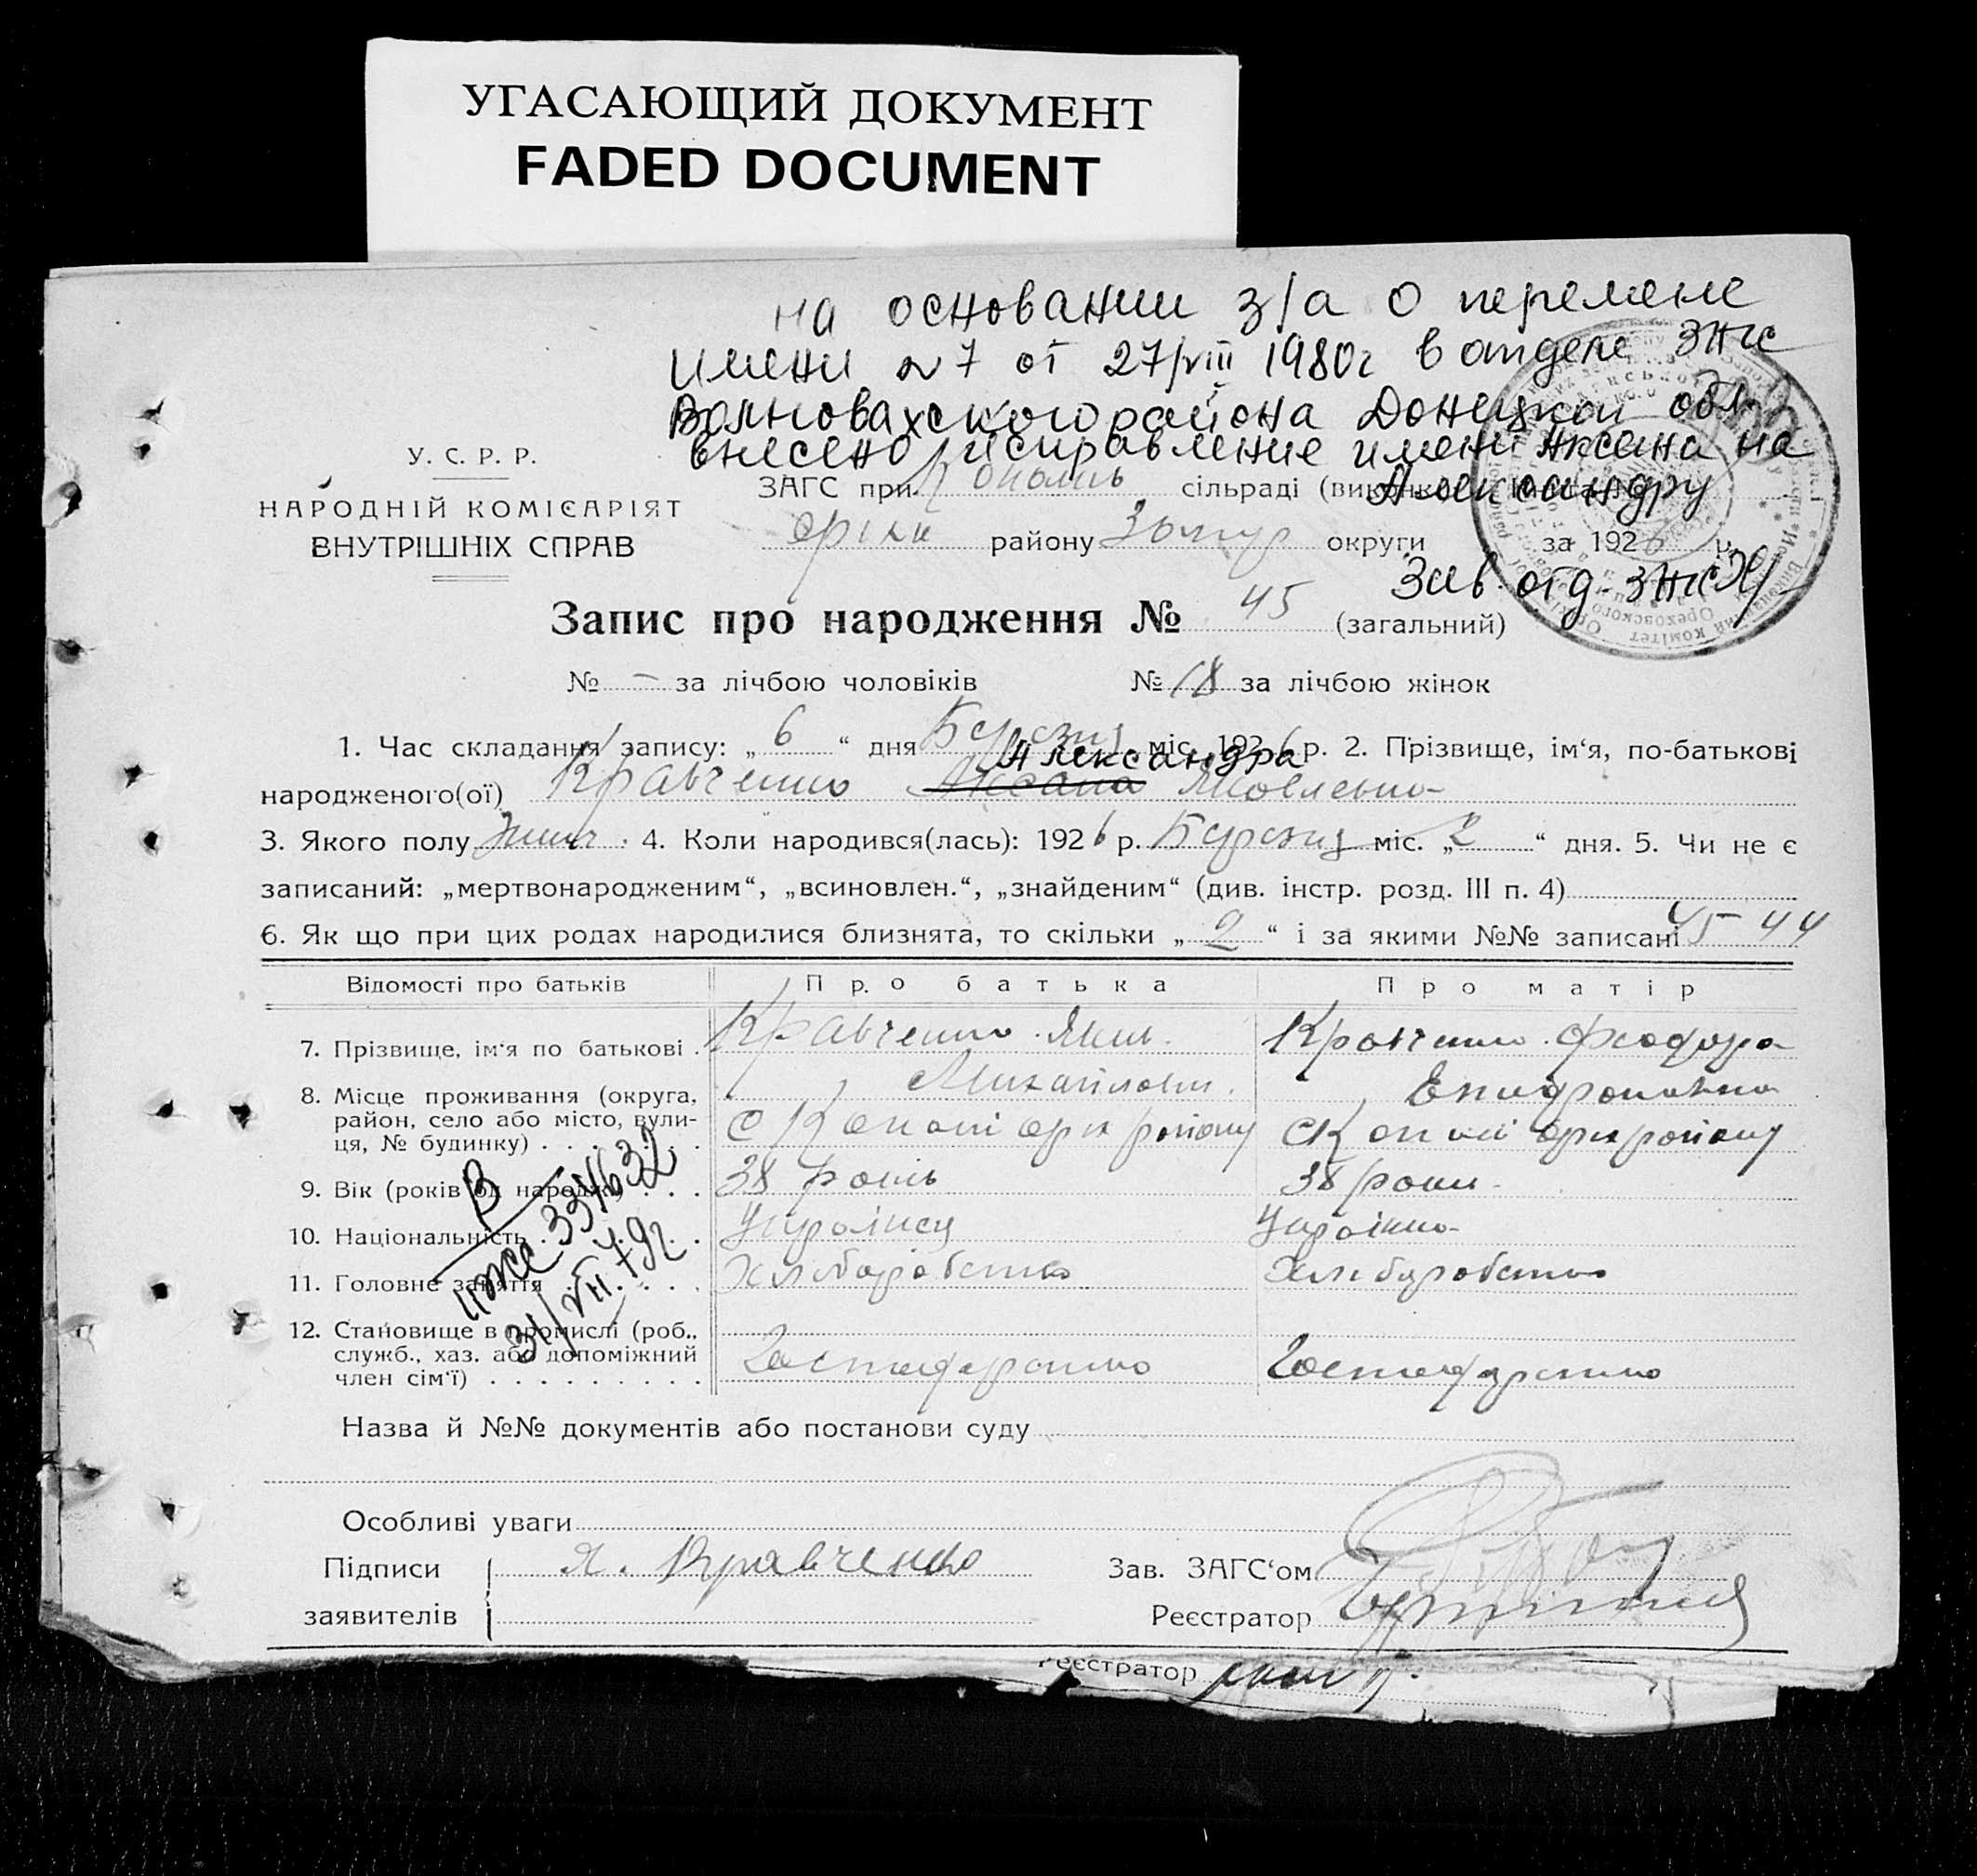 УГАСАЮЩИЙ ДОКУМЕНТ
FADED DOCUMENT
на основании з/а о перемене
имени №7 от 27/VIII 1980г в отделе ЗАГС
Волновахского района Донецкой обл.
внесено исправление имени Аксана на
Александру
Зав. отд. ЗАГС
У. С. Р. Р.
НАРОДНІЙ КОМІСАРІЯТ
ВНУТРІШНІХ СПРАВ
ЗАГС при сільраді
району округи за 1926 р.
Запис про народження № 45 (загальний)
№ – за лічбою чоловіків № 18 за лічбою жінок
1. Час складання запису: „ 6 “ дня Березня міс. 1926 р. 2. Прізвище, ім‘я, по-батькові
Александра
народженого(ої) Кравченко Аксана Яковлевна
3. Якого полу жіноч. 4. Коли народився(лась): 1926 р. Березня міс. „ 2 “ дня. 5. Чи не є
записаний: „мертвонародженим“, „всиновлен.“, „знайденим“ (див. інстр. розд. III п. 4)
6. Як що при цих родах народилися близнята, то скільки „ 2 “ і за якими №№ записані 45–44
Відомості про батьків Про батька Про матір
7. Прізвище, ім‘я по батькові Кравченко Яків Кравченко Феодора
Михайлович
8. Місце проживання (округа,
район, село або місто, вули-
ця, № будинку)
9. Вік (років від народж.) 38 років 38 роки
10. Національність Українець Українка
11. Головне заняття Хліборобство Хліборобство
12. Становище в промислі (роб.,
служб., хаз. або допоміжний
член сім‘ї)
334632
31/VII.79г
Назва й №№ документів або постанови суду
Особливі уваги
Підписи Я. Кравченко Зав. ЗАГС‘ом
заявителів Реєстратор
Реєстратор